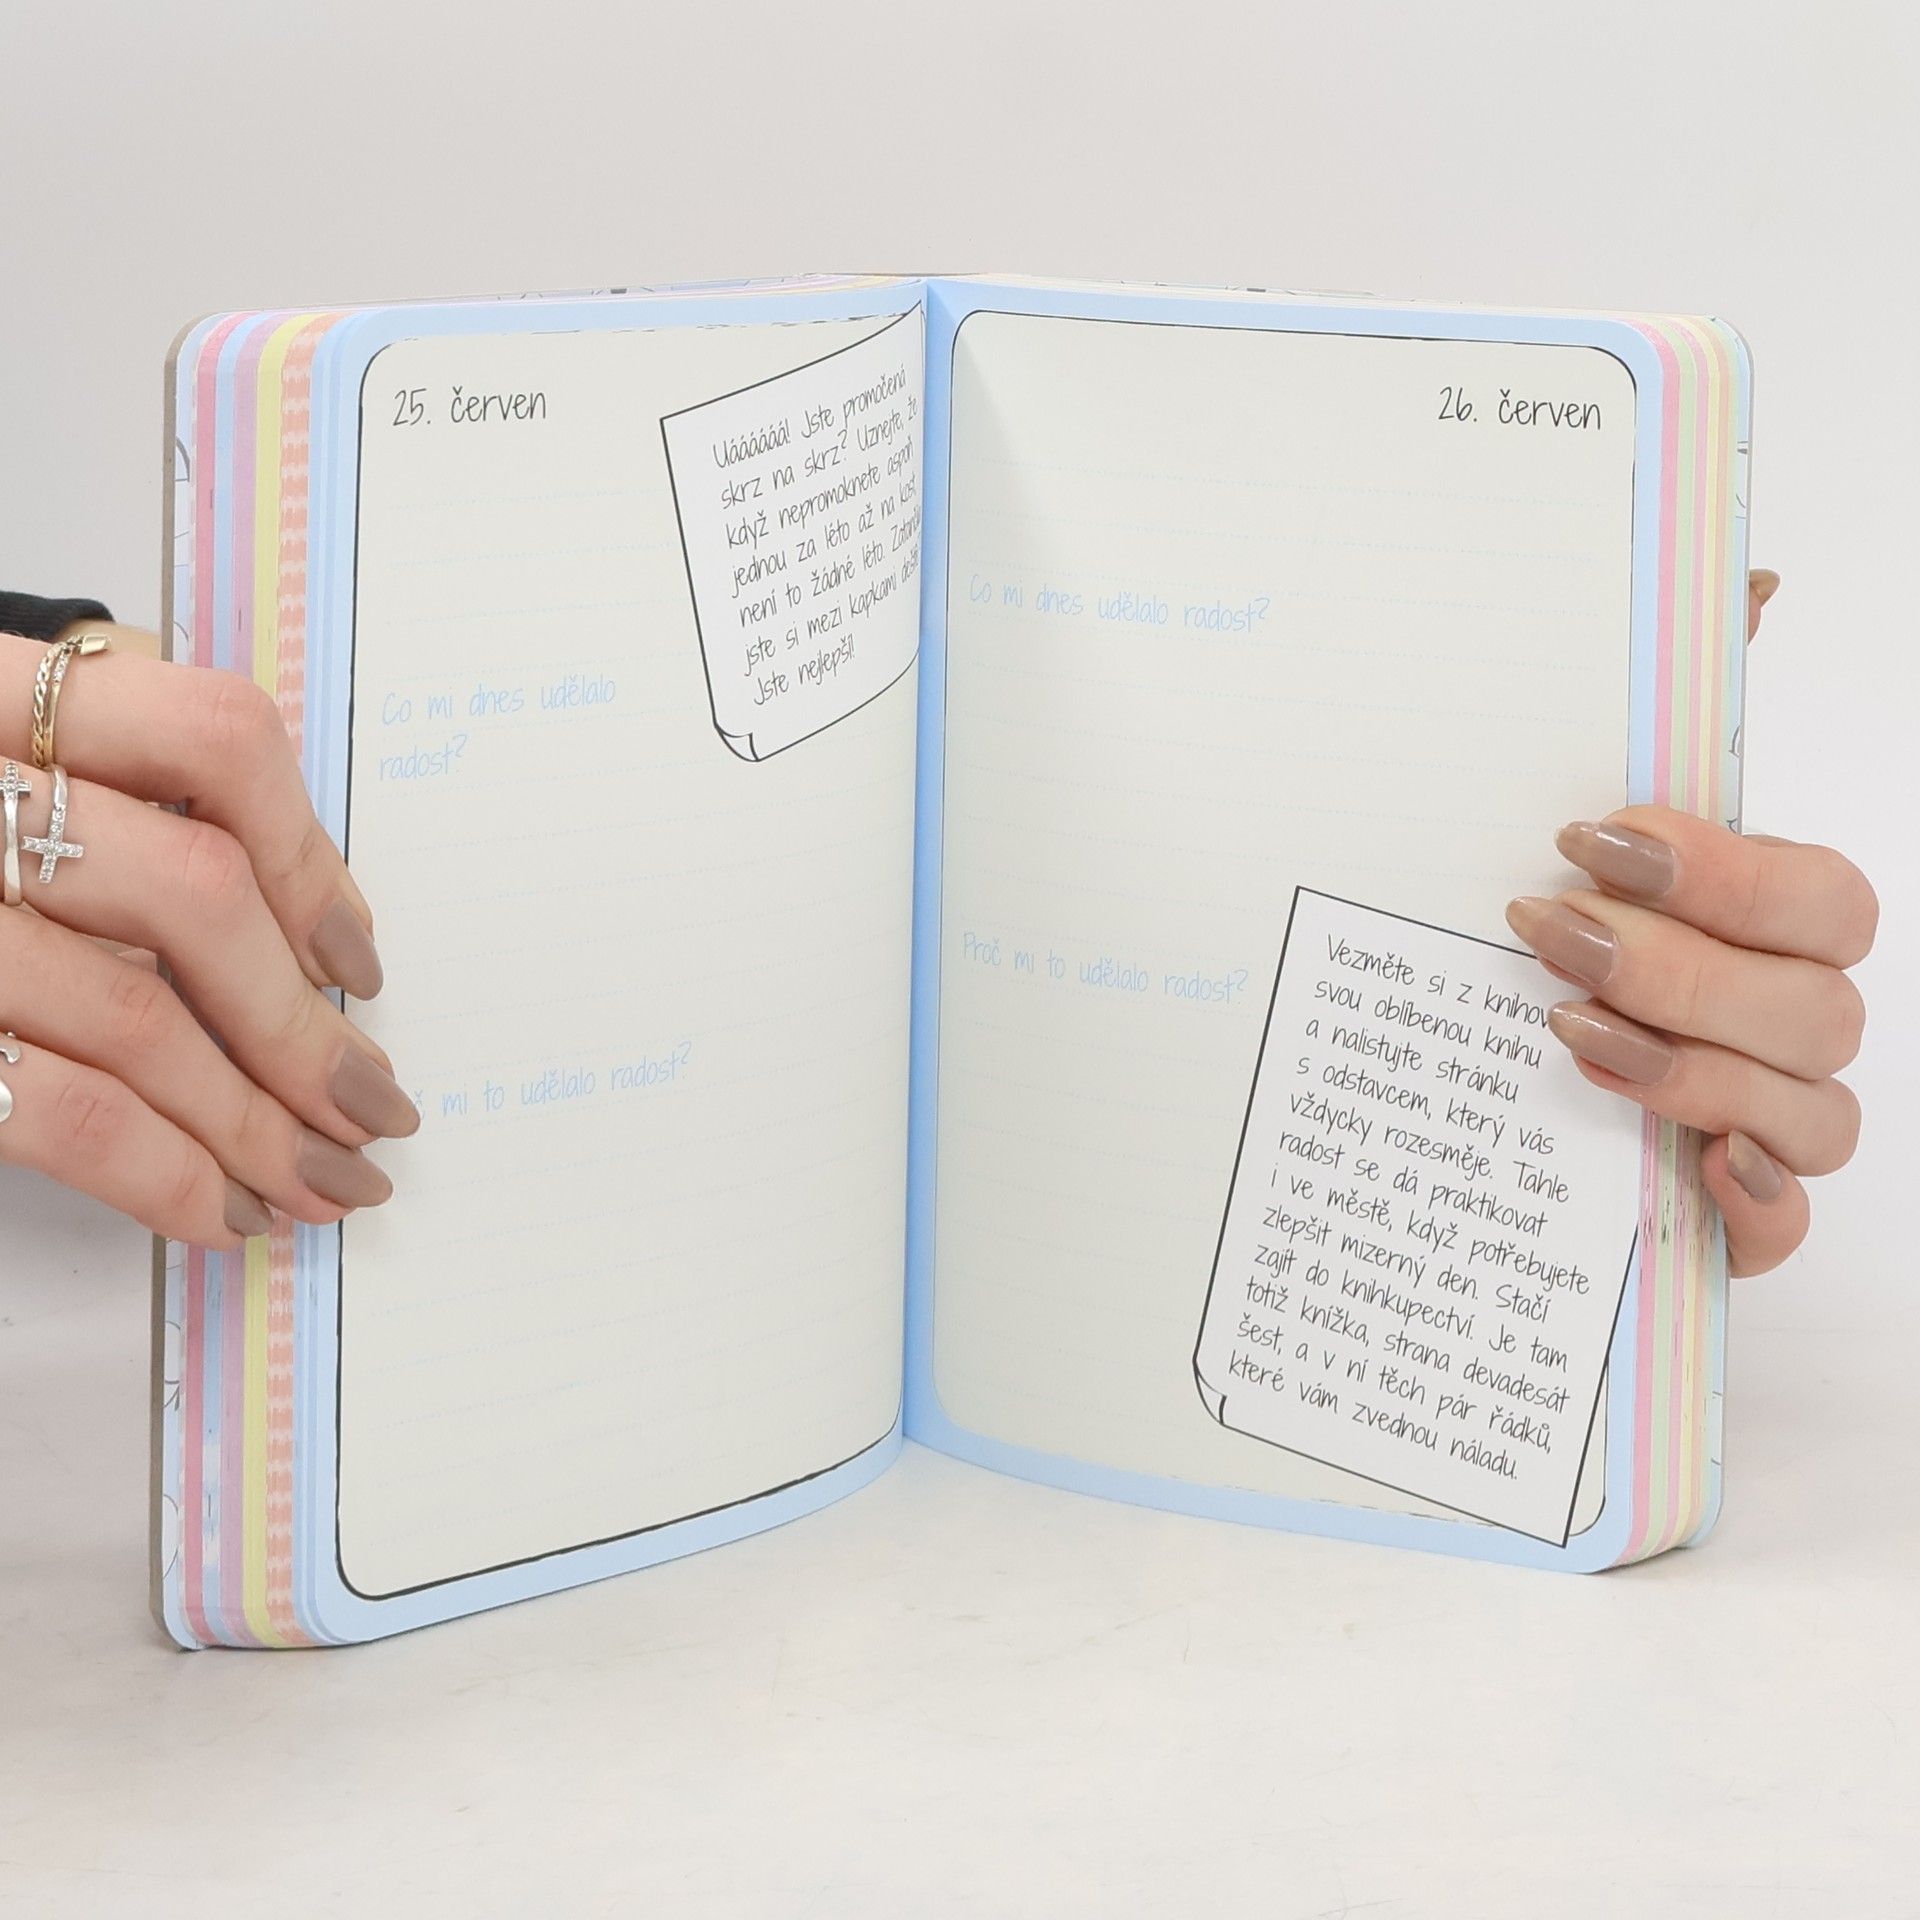 25. červen
Uáááááá! Jste promočená
skrz na skrz? Uznejte, že
když nepromoknete aspoň
jednou za léto až na kost,
není to žádné léto. 
jste si mezi kapkami deště
Jste nejlepší!
Co mi dnes udělalo
radost?
mi to udělalo radost?
26. červen
Co mi dnes udělalo radost?
Proč mi to udělalo radost?
Vezměte si z
svou oblíbenou knihu
a nalistujte stránku
s odstavcem, který vás
vždycky rozesměje. Tahle
radost se dá praktikovat
i ve městě, když potřebujete
zlepšit mizerný den. Stačí
zajít do knihkupectví. Je tam
totiž knížka, strana devadesát
šest, a v ní těch pár řádků,
které vám zvednou náladu.